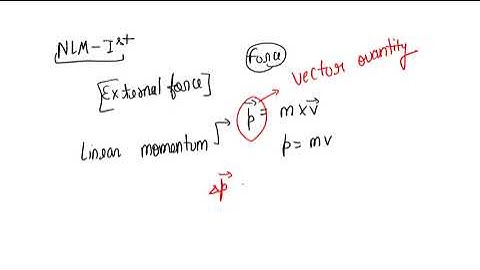 NLM-Ist
force
vector quantity
[External force]
p⃗ = m x v⃗
Linear momentum
p = mv
Δp⃗